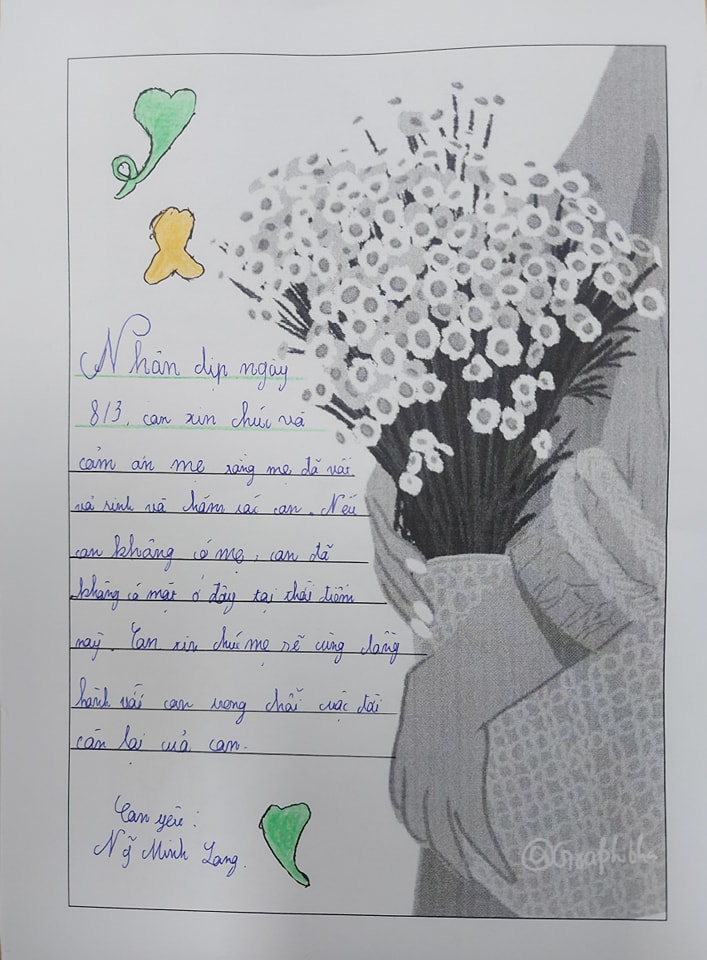 Nhân dịp ngày
8/3, con xin chúc và
cảm ơn mẹ rằng mẹ đã vất
vả sinh và chăm sóc con. Nếu
con không có mẹ, con đã
không có mặt ở đây tại thời điểm
này. Con xin chúc mẹ sẽ cùng đồng
hành với con trong chỗ cuộc đời
còn lại của con.
Con yêu:
Ng̃ Minh Long.